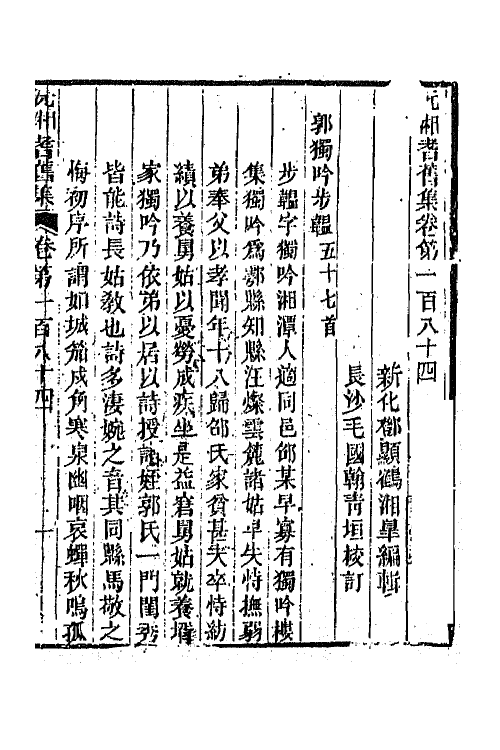 沅湘耆舊集卷第一百八十四
新化鄧顯鶴湘皐編輯
長沙毛國翰青垣校訂
郭獨吟步韞五十七首
步韞字獨吟湘潭人適同邑邵某早寡有獨吟樓
集獨吟爲鄠縣知縣汪燦雲麓諸姑早失恃撫弱
弟奉父以孝聞年十八歸邵氏家貧甚夫卒恃紡
績以養舅姑以憂勞成疾坐是益窘舅姑就養壻
家獨吟乃依弟以居以詩授諸姪郭氏一門閨秀
皆能詩長姑敎也詩多淒婉之音其同縣馬敬之
悔初序所謂如城笳戍角寒泉幽咽哀蟬秋鳴孤
沅湘耆舊集
卷第一百八十四
一